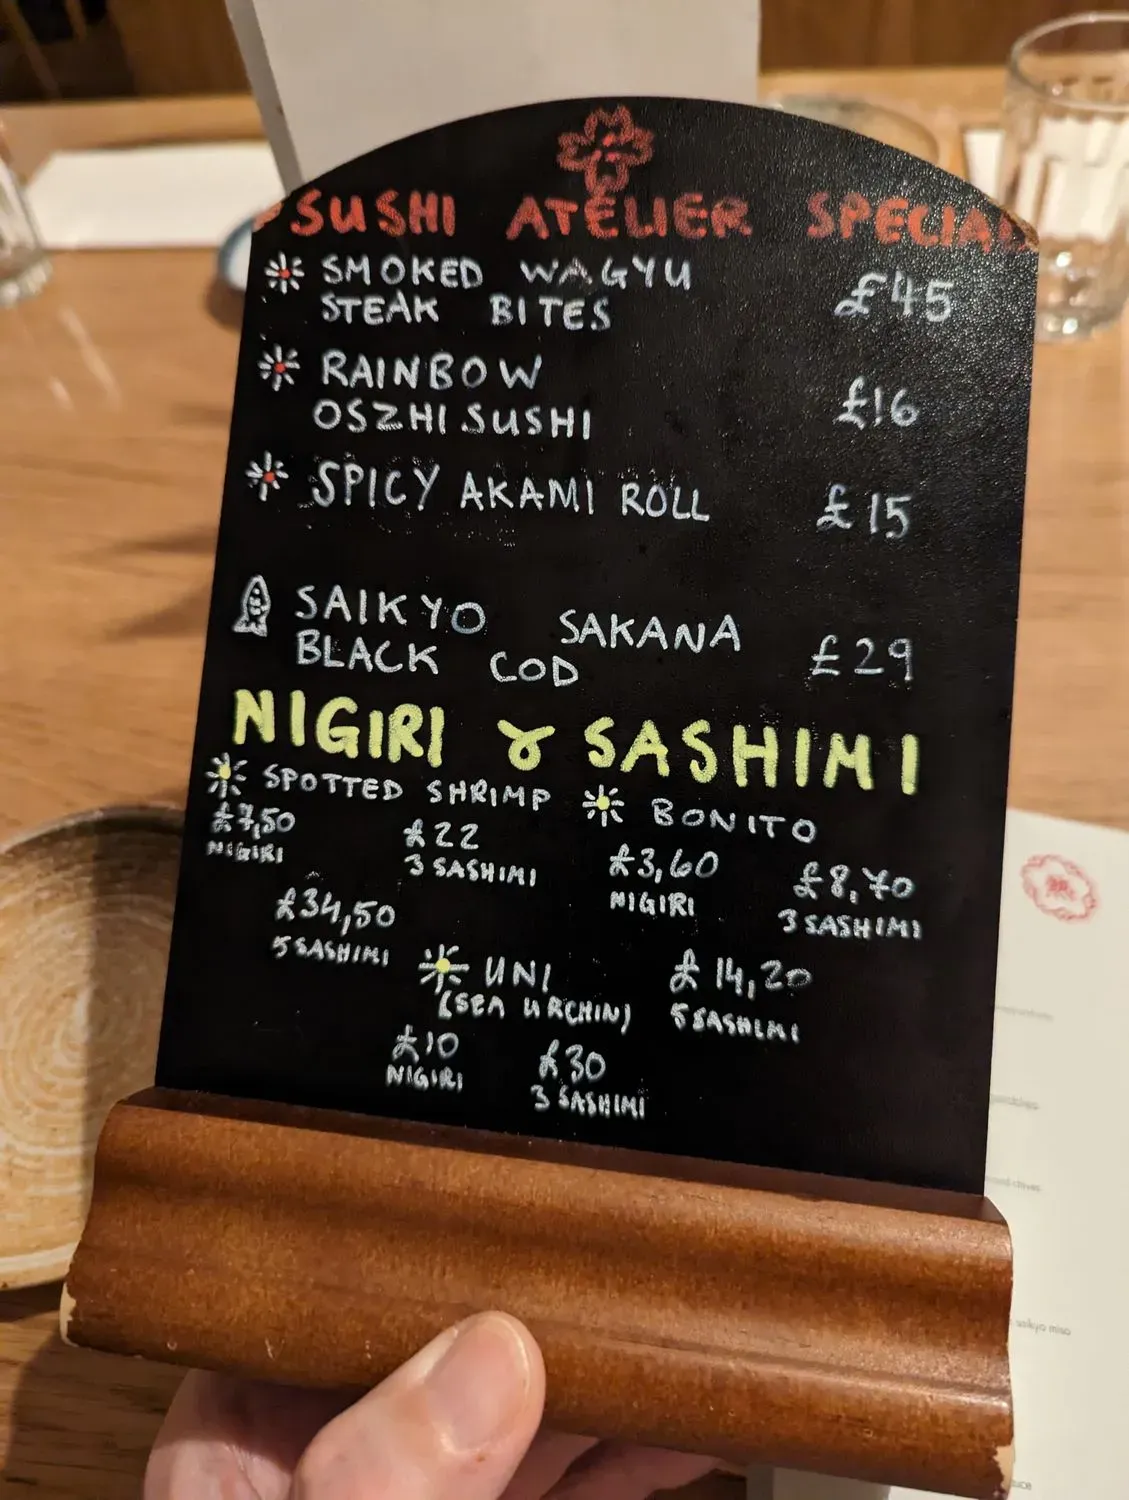 SUSHI ATELIER SPECIAL
SMOKED WAGYU
STEAK BITES £45
RAINBOW
OSZHI SUSHI £16
SPICY AKAMI ROLL £15
SAIKYO SAKANA
BLACK COD £29
NIGIRI & SASHIMI
SPOTTED SHRIMP
£7,50
NIGIRI
£22
3 SASHIMI
£34,50
5 SASHIMI
BONITO
£3,60
NIGIRI
£8,70
3 SASHIMI
£14,20
5 SASHIMI
UNI
(SEA URCHIN)
£10
NIGIRI
£30
3 SASHIMI
saikyo miso